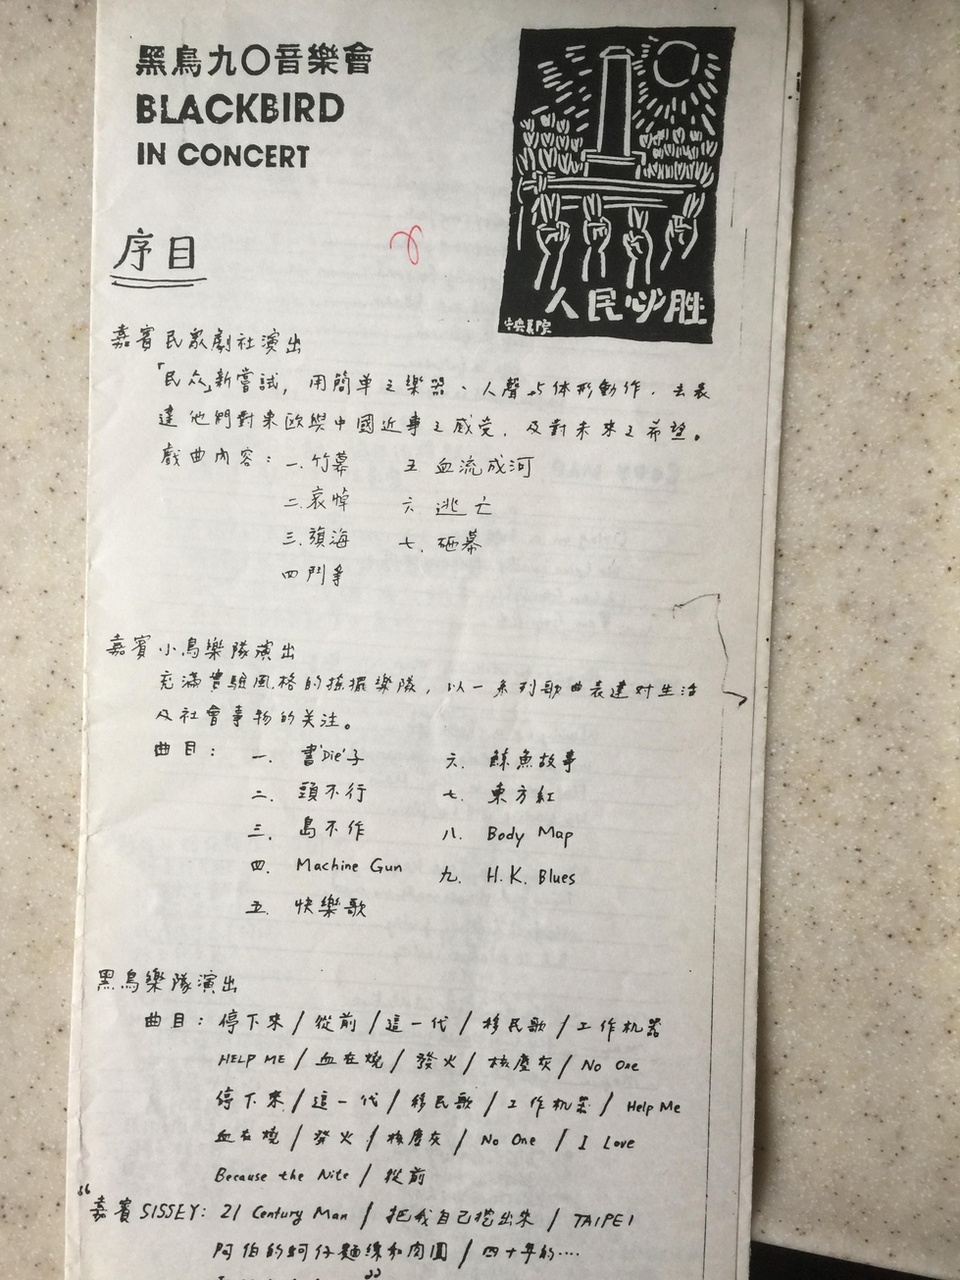 黑鳥九〇音樂會
BLACKBIRD
IN CONCERT
人民必胜
中央美院
序目
嘉賓民眾劇社演出
「民众」新嘗試，用簡单之樂器、人聲与体形動作，去表
達他們對東歐與中國近事之感受，及對未來之希望。
戲曲內容：一.竹幕 五 血流成河
二.哀悼 六 逃亡
三.頭海 七.砸幕
四 鬥爭
嘉賓小鳥樂隊演出
充滿實驗風格的搖擺樂隊，以一系列歌曲表達对生活
及社會事物的关注。
曲目： 一. 書'Die'子 六. 鯨魚故事
二. 頭不行 七. 東方紅
三. 島不作 八. Body Map
四. Machine Gun 九. H.K. Blues
五. 快樂歌
黑鳥樂隊演出
曲目：停下來/從前/這一代/移民歌/工作机器
HELP ME/血在燒/發火/核塵灰/No One
停下來/這一代/移民歌/工作机器/Help Me
血在燒/發火/核塵灰/No One/I Love
Because the Nite/從前
"嘉賓SISSEY: 21 Century Man/把我自己挖出來/TAIPEI
阿伯的蚵仔麵線和肉圓/四十年的....